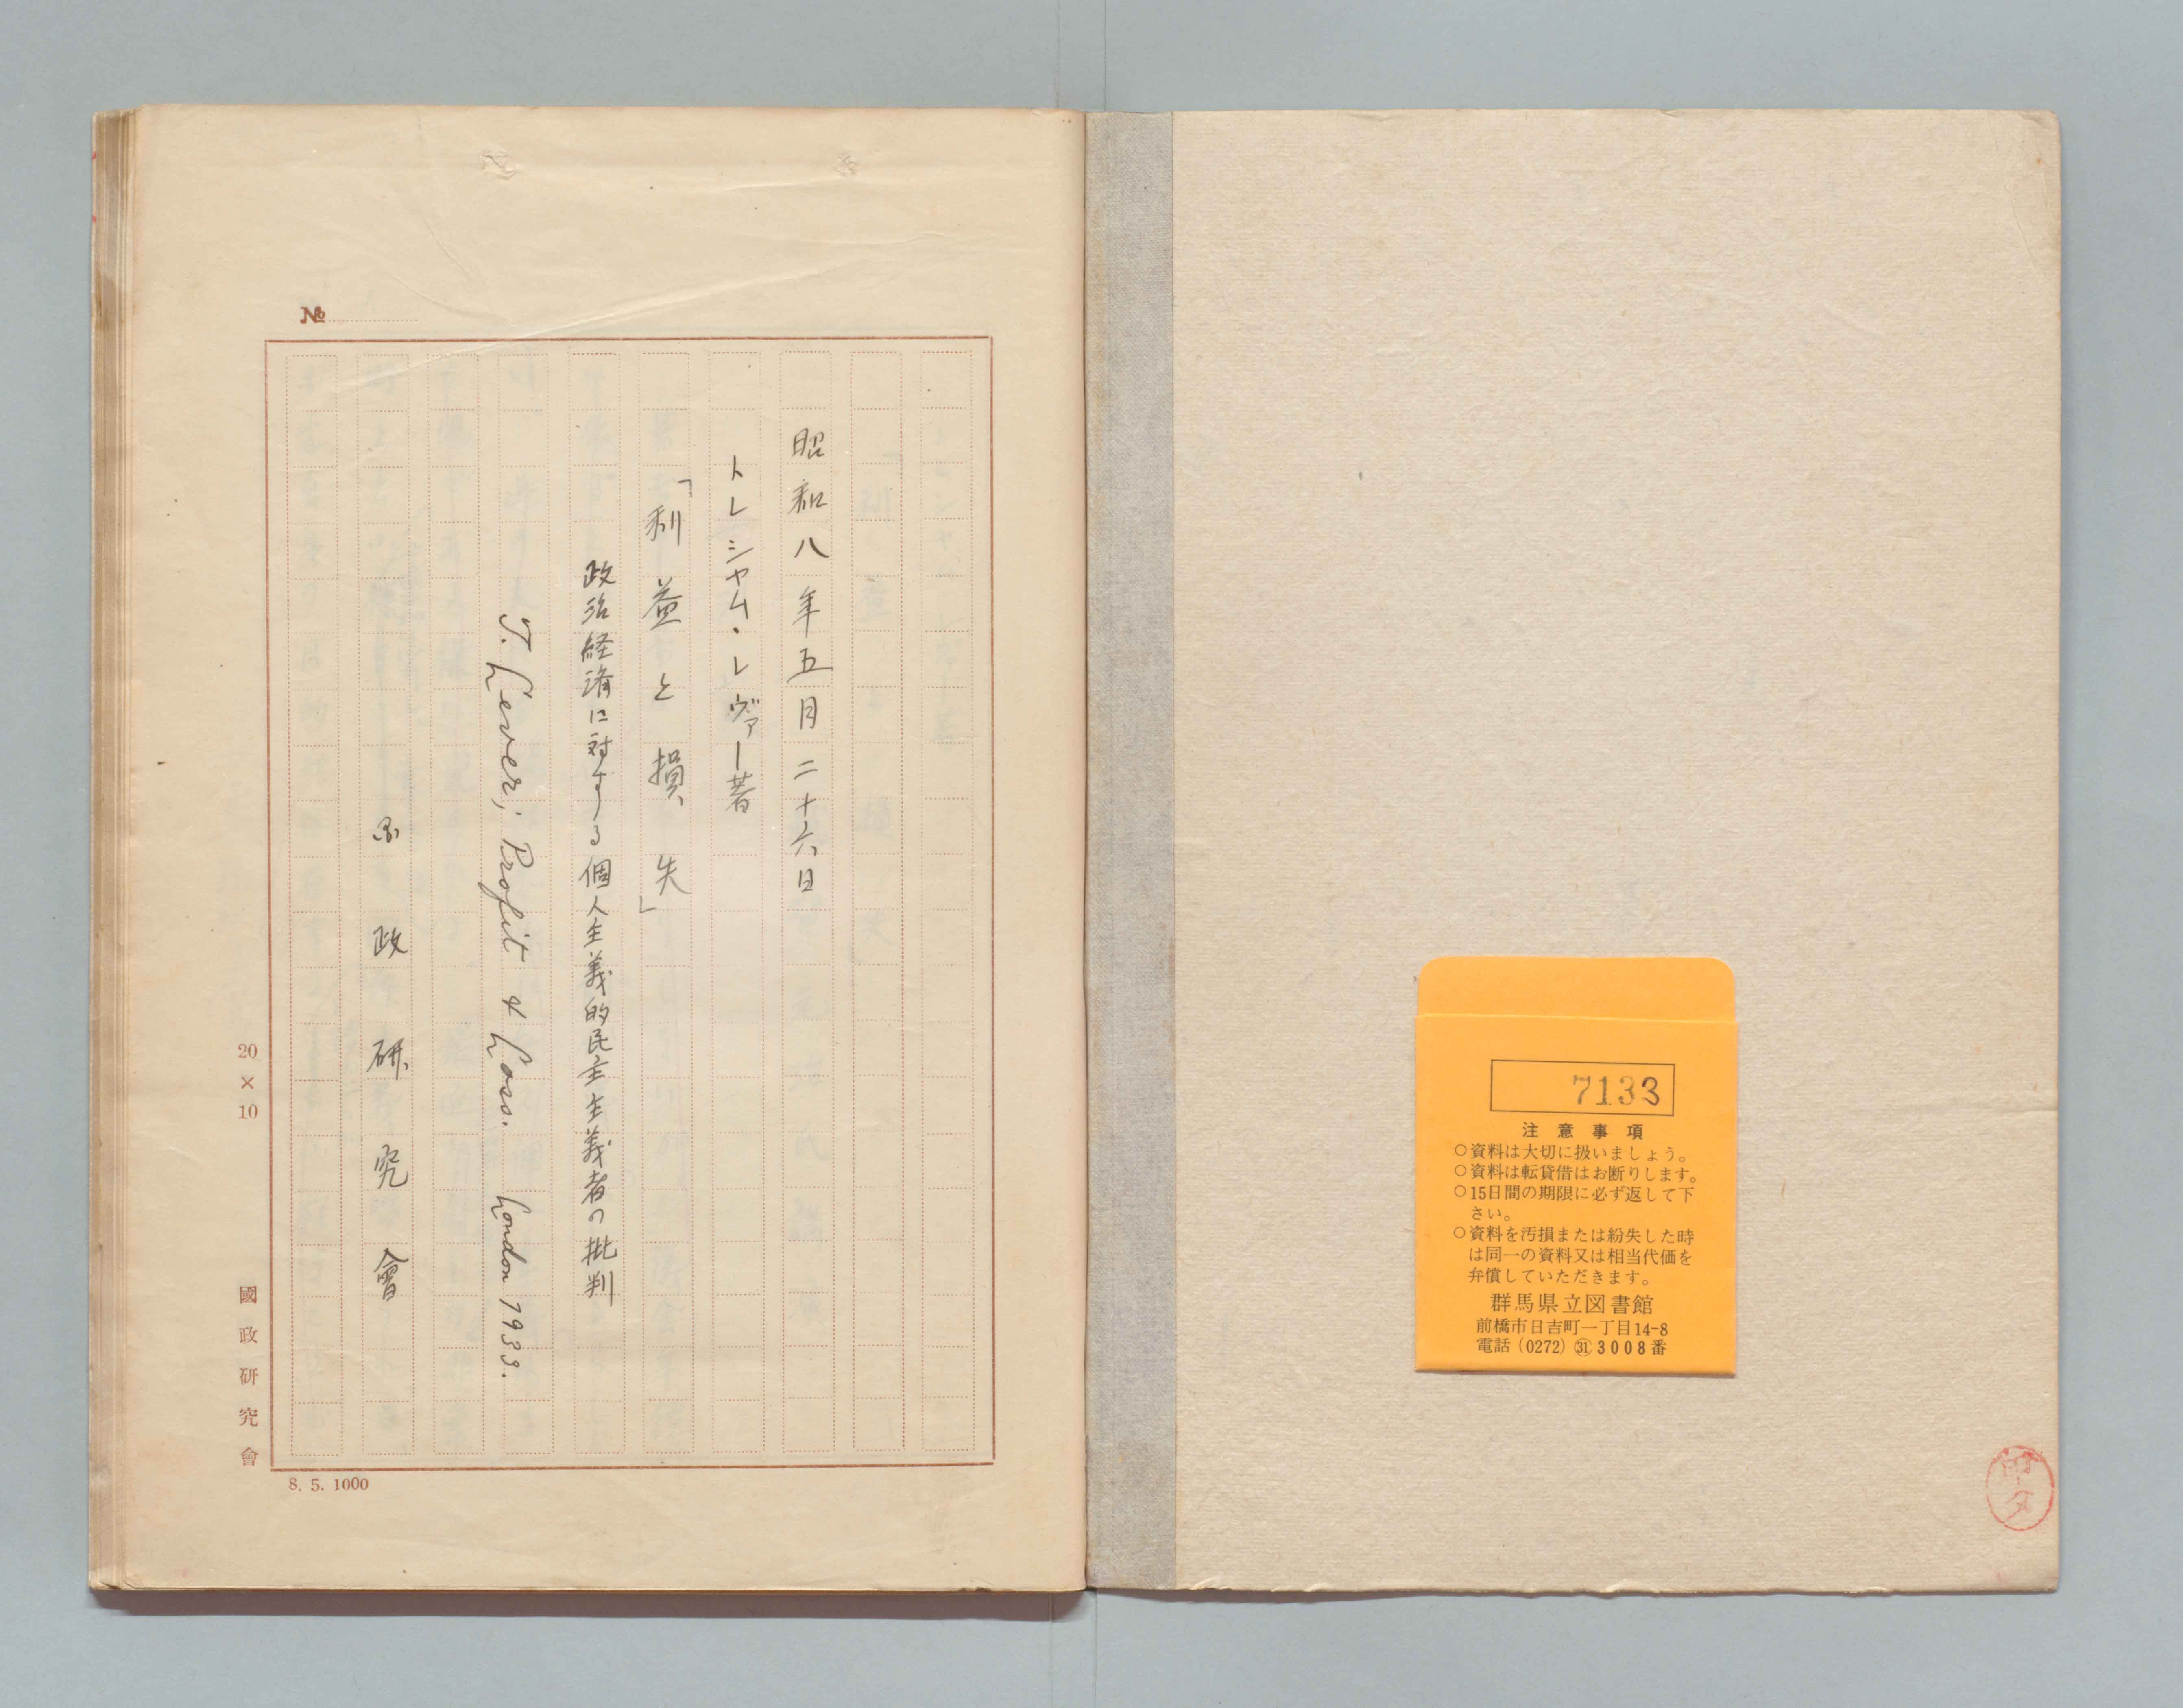 7133
注意事項
○資料は大切に扱いましょう。
○資料は転貸借はお断りします。
○15日間の期限に必ず返して下
さい。
○資料を汚損または紛失した時
は同一の資料又は相当代価を
弁償していただきます。
群馬県立図書館
前橋市日吉町一丁目14-8
電話(0272)㉛3008番
№
昭和八年五月二十六日
トレシャム・レヴァー著
「利益と損失」
政治経済に対する個人主義的民主主義者の批判
T. Lever; Profit & Loss. London 1933.
政研究會
20×10
國政研究會
8. 5. 1000